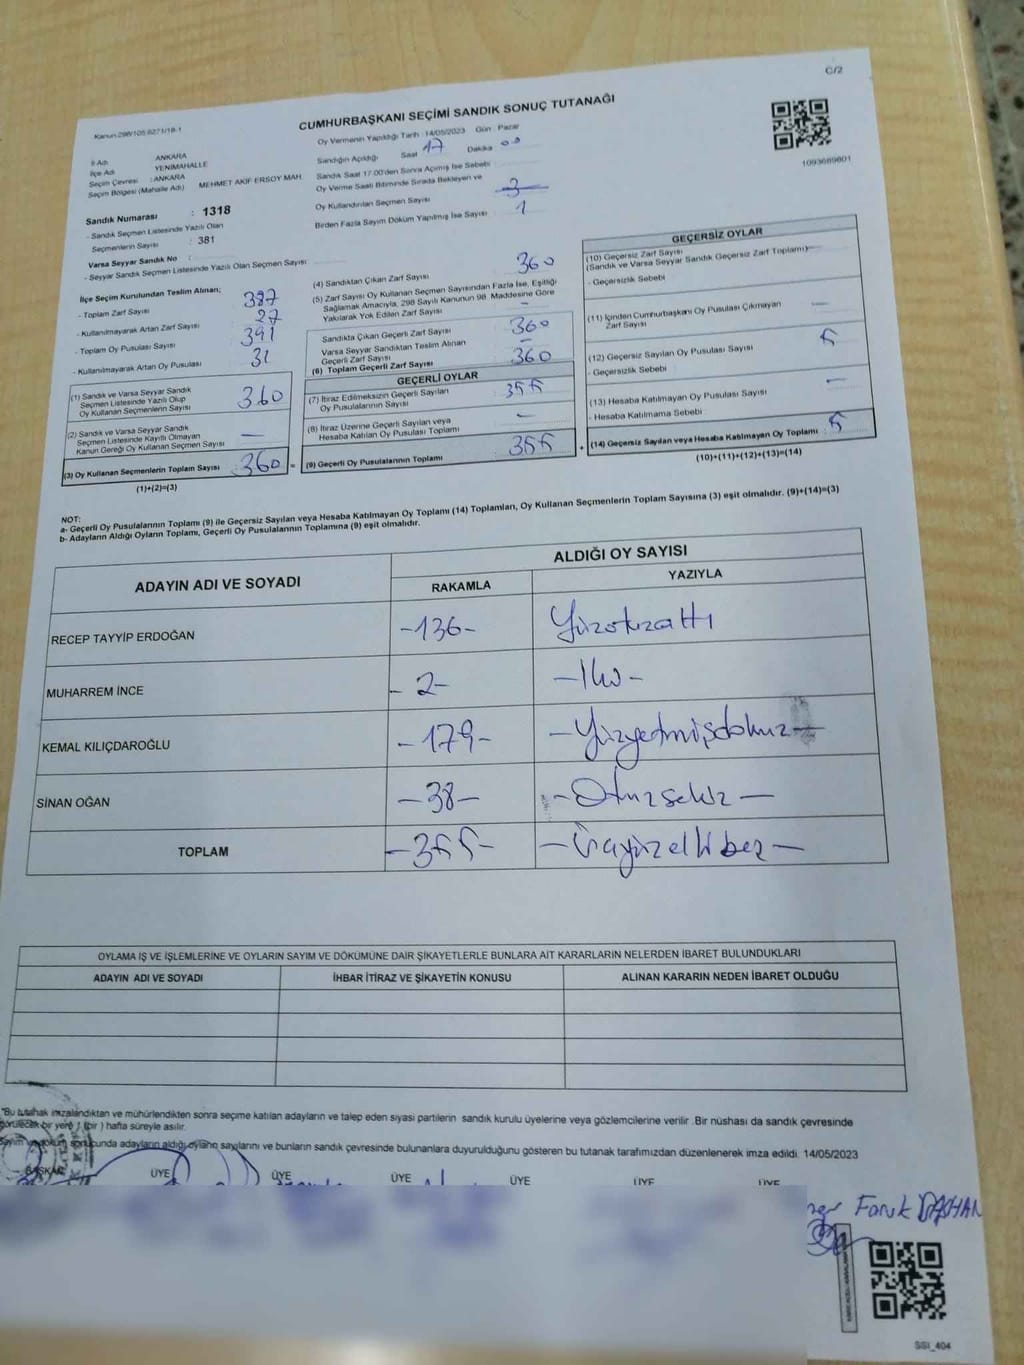 C/2
Kanun:298/105,6271/18-1
CUMHURBAŞKANI SEÇİMİ SANDIK SONUÇ TUTANAĞI
Oy Vermenin Yapıldığı Tarih : 14/05/2023 Gün Pazar
İl Adı ANKARA
İlçe Adı YENİMAHALLE
Seçim Çevresi : ANKARA
Seçim Bölgesi (Mahalle Adı) MEHMET AKİF ERSOY MAH.
Sandık Numarası : 1318
- Sandık Seçmen Listesinde Yazılı Olan
Seçmenlerin Sayısı : 381
Varsa Seyyar Sandık No :
- Seyyar Sandık Seçmen Listesinde Yazılı Olan Seçmen Sayısı:
Sandığın Açıldığı Saat 17 Dakika 00
Sandık Saat 17.00'den Sonra Açımış İse Sebebi
Oy Verme Saati Bitiminde Sırada Bekleyen ve
Oy Kullandırılan Seçmen Sayısı 3
Birden Fazla Sayım Döküm Yapılmış İse Sayısı 1
1093689801
İlçe Seçim Kurulundan Teslim Alınan;
- Toplam Zarf Sayısı 387
- Kullanılmayarak Artan Zarf Sayısı 27
- Toplam Oy Pusulası Sayısı 391
- Kullanılmayarak Artan Oy Pusulası 31
(1) Sandık ve Varsa Seyyar Sandık
Seçmen Listesinde Yazılı Olup
Oy Kullanan Seçmenlerin Sayısı 360
(2) Sandık ve Varsa Seyyar Sandık
Seçmen Listesinde Kayıtlı Olmayan
Kanun Gereği Oy Kullanan Seçmen Sayısı —
(3) Oy Kullanan Seçmenlerin Toplam Sayısı : 360 =
(1)+(2)=(3)
(4) Sandıktan Çıkan Zarf Sayısı 360
(5) Zarf Sayısı Oy Kullanan Seçmen Sayısından Fazla İse, Eşitliği
Sağlamak Amacıyla, 298 Sayılı Kanunun 98. Maddesine Göre
Yakılarak Yok Edilen Zarf Sayısı -
Sandıkta Çıkan Geçerli Zarf Sayısı 360
Varsa Seyyar Sandıktan Teslim Alınan
Geçerli Zarf Sayısı -
(6) Toplam Geçerli Zarf Sayısı 360
GEÇERLİ OYLAR
(7) İtiraz Edilmeksizin Geçerli Sayılan
Oy Pusulalarının Sayısı 355
(8) İtiraz Üzerine Geçerli Sayılan veya
Hesaba Katılan Oy Pusulası Toplamı -
(9) Geçerli Oy Pusulalarının Toplamı : 355 +
GEÇERSİZ OYLAR
(10) Geçersiz Zarf Sayısı
(Sandık ve Varsa Seyyar Sandık Geçersiz Zarf Toplamı) —
- Geçersizlik Sebebi
(11) İçinden Cumhurbaşkanı Oy Pusulası Çıkmayan
Zarf Sayısı —
(12) Geçersiz Sayılan Oy Pusulası Sayısı 5
- Geçersizlik Sebebi
(13) Hesaba Katılmayan Oy Pusulası Sayısı —
- Hesaba Katılmama Sebebi
(14) Geçersiz Sayılan veya Hesaba Katılmayan Oy Toplamı : 5
(10)+(11)+(12)+(13)=(14)
NOT:
a- Geçerli Oy Pusulalarının Toplamı (9) ile Geçersiz Sayılan veya Hesaba Katılmayan Oy Toplamı (14) Toplamları, Oy Kullanan Seçmenlerin Toplam Sayısına (3) eşit olmalıdır. (9)+(14)=(3)
b- Adayların Aldığı Oyların Toplamı, Geçerli Oy Pusulalarının Toplamına (9) eşit olmalıdır.
ADAYIN ADI VE SOYADI ALDIĞI OY SAYISI
RAKAMLA YAZIYLA
RECEP TAYYİP ERDOĞAN -136- Yüzotuzaltı
MUHARREM İNCE - 2 - - İki -
KEMAL KILIÇDAROĞLU - 179 - - Yüzyetmişdokuz -
SİNAN OĞAN - 38 - - Otuzsekiz -
TOPLAM - 355 - - Üçyüzellibeş -
OYLAMA İŞ VE İŞLEMLERİNE VE OYLARIN SAYIM VE DÖKÜMÜNE DAİR ŞİKAYETLERLE BUNLARA AİT KARARLARIN NELERDEN İBARET BULUNDUKLARI
ADAYIN ADI VE SOYADI İHBAR İTİRAZ VE ŞİKAYETİN KONUSU ALINAN KARARIN NEDEN İBARET OLDUĞU
*Bu tutanak imzalandıktan ve mühürlendikten sonra seçime katılan adayların ve talep eden siyasi partilerin sandık kurulu üyelerine veya gözlemcilerine verilir. Bir nüshası da sandık çevresinde
görülecek bir yere 1 (bir) hafta süreyle asılır.
Sayım ve döküm sonucunda adayların aldığı oyların sayılarını ve bunların sandık çevresinde bulunanlara duyurulduğunu gösteren bu tutanak tarafımızdan düzenlenerek imza edildi. 14/05/2023
BAŞKAN ÜYE ÜYE ÜYE ÜYE ÜYE ÜYE
Faruk
SSI_404